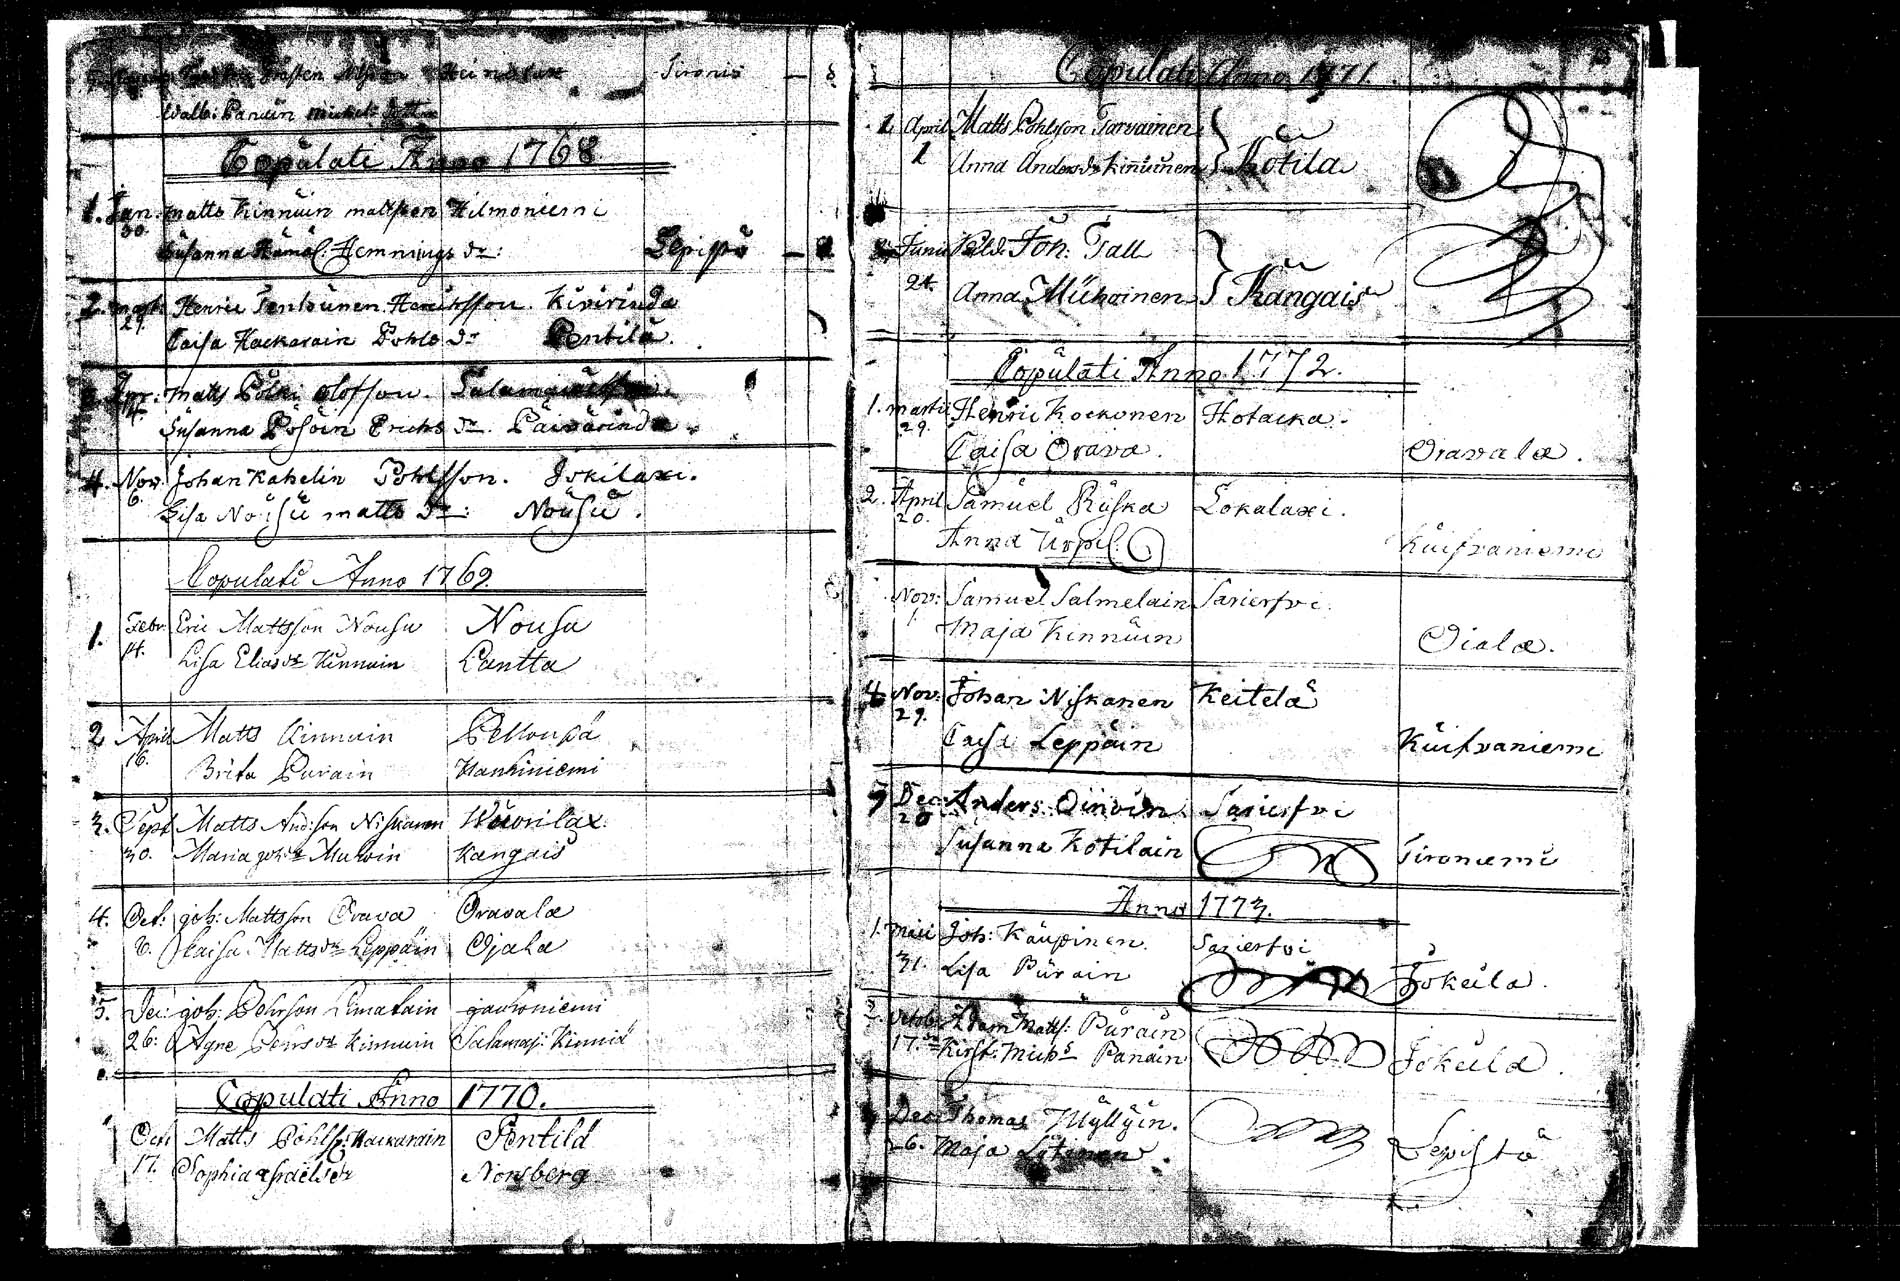 Tironis — 3
Wallb: Panain Michels
Copulati Anno 1768.
1. Jan: Matts Kinnuin Mattsson Hilmoniemi
30. Susanna Hämäl: Hemnings dr: Lepistö
2. Mart: Henric Penttinen Henricsson Kivirinda
29. Caisa Kackarain Pohls dr Penttilä.
3. Apr: Matts Pölki Olofsson.
4. Susanna Pösöin Erichs dr. Päivärinda
4. Nov: Johan Kahelin Pohlsson. Jokilaxi.
6. Lisa Nousu Matts dr: Nousu.
Copulati Anno 1769.
1. Febr: Eric Mattsson Nousu Nousu
14. Lisa Elias dr Kinnuin Lantta
2 April Matts Kinnuin Pellonpä
16. Brita Purain Hankiniemi
3. Sept Matts And:son Niskanen Wuorilax:
30. Maria joh: dr Muhoin Kangais
4. Oct: joh: Mattsson Orava Oravala
6. Kaisa Matts dr Leppäin Ojala
5. Dec: joh: Pehrson Limatain jauhoniemi
26: Agne Pehrs dr Kinnuin Salamaj: Kinnu
Copulati Anno 1770.
1 Oct: Matts Pohlss: Kackarain Pentilä
17. Sophia Israels dr Norsberg
Copulati Anno 1771
1 April Matts Pohlsson Tarvainen
1 Anna Anders dr Kinnuinen } Kotila
2. Junii Joh: Tall
24. Anna Muhoinen } Kangais
Copulati Anno 1772.
1. Martii Henric Kockonen Hotacka.
29. Caisa Orava. Oravala.
2. April Samuel Ruska Lokalaxi.
20. Anna Urpil: Kuifvaniemi
Nov: Samuel Salmelain Sarierfvi.
1. Maja Kinnuin Oiala.
4 Nov: Johan Niskanen Keitelä
29. Caisa Leppäin Kuifvaniemi
5 Dec: Anders Oinoin Sarierfvi
26 Susanna Kotilain Tironiemi
Anno 1773.
1. Maii Joh: Kaupinen. Sarierfvi
31. Lisa Purain Jokela.
2. Octobr Adam Matts: Purain
17. Kirst: Mich: dr Panain Jokela.
3 Dec: Thomas Myllyin.
26. Maja Lötinen. Lepistö